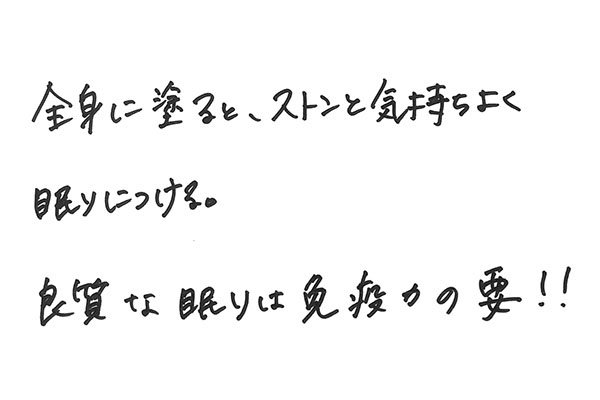 全身に塗ると、ストンと気持ちよく
眠りにつける。
良質な眠りは免疫力の要!!